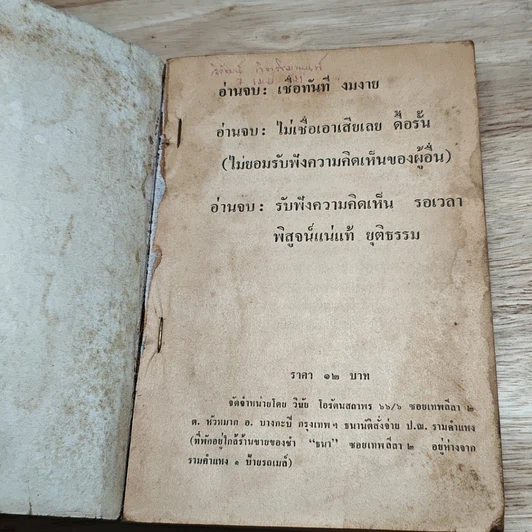 อ่านจบ: เชื่อทันที งมงาย
อ่านจบ: ไม่เชื่อเอาเสียเลย ดื้อรั้น
(ไม่ยอมรับฟังความคิดเห็นของผู้อื่น)
อ่านจบ: รับฟังความคิดเห็น รอเวลา
พิสูจน์แน่แท้ ยุติธรรม
ราคา ๑๒ บาท
จัดจำหน่ายโดย วินัย โอรัตนสถาพร ๖๖/๖ ซอยเทพลีลา ๒
ต. หัวหมาก อ. บางกะปิ กรุงเทพฯ ธนาณัติสั่งจ่าย ป.ณ. รามคำแหง
(ที่พักอยู่ใกล้ร้านขายของชำ “ธนา” ซอยเทพลีลา ๒ อยู่ห่างจาก
รามคำแหง ๑ ป้ายรถเมล์)